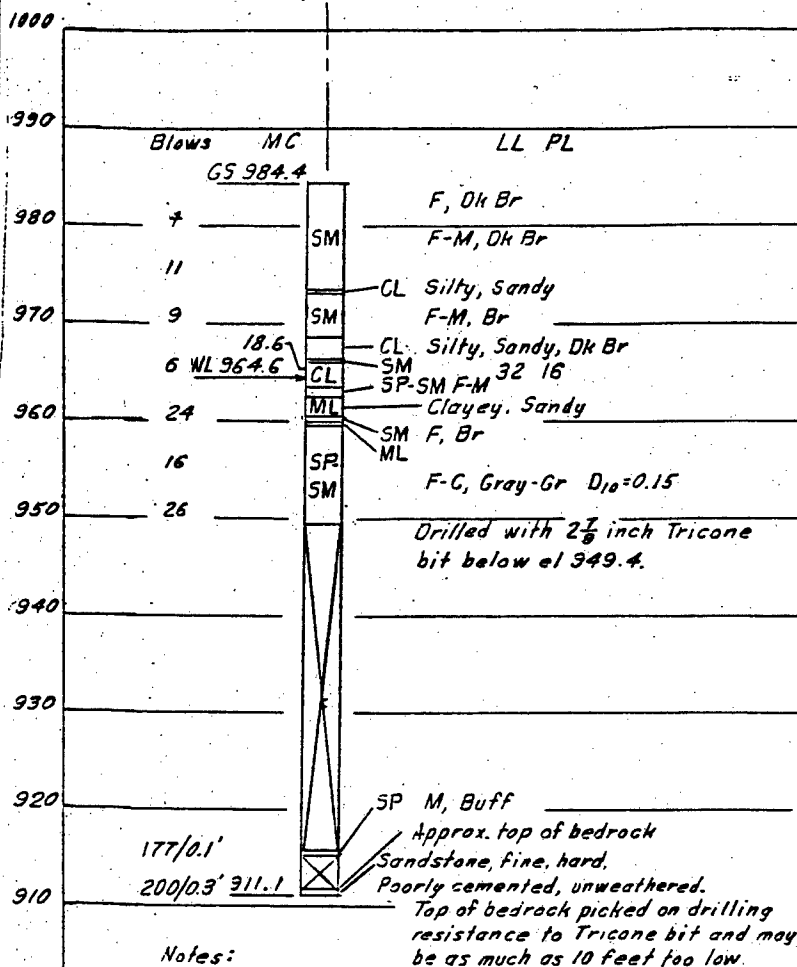 1000
990
Blows MC LL PL
GS 984.4
F, Dk Br
980
SM F-M, Dk Br
11
CL Silty, Sandy
970 9 SM F-M, Br
18.6 CL Silty, Sandy, Dk Br
SM 32 16
6 WL 964.6 CL
SP-SM F-M
ML Clayey, Sandy
960 24
SM F, Br
ML
16 SP-
SM F-C, Gray-Gr D10=0.15
950 26
Drilled with 2 7/8 inch Tricone
bit below el 949.4.
940
930
920
SP M, Buff
Approx. top of bedrock
177/0.1' Sandstone, fine, hard,
200/0.3' 911.1 Poorly cemented, unweathered.
910
Top of bedrock picked on drilling
resistance to Tricone bit and may
be as much as 10 feet too low.
Notes: